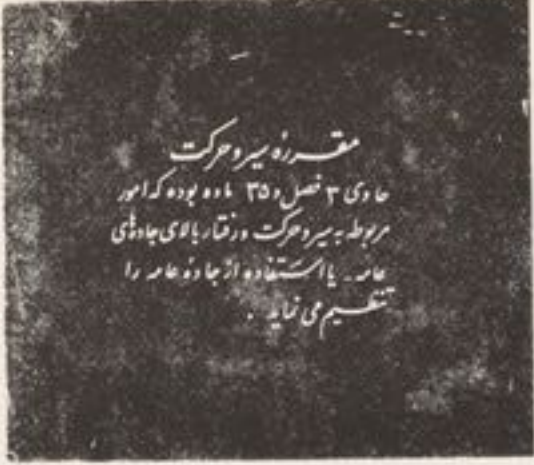 مقررهٔ سیر و حرکت
حاوی ۳ فصل و ۳۵ ماده بوده که امور
مربوط به سیر و حرکت و رفتار بالای جاده‌های
عامه ـ یا استفاده از جادهٔ عامه را
تنظیم می نماید .